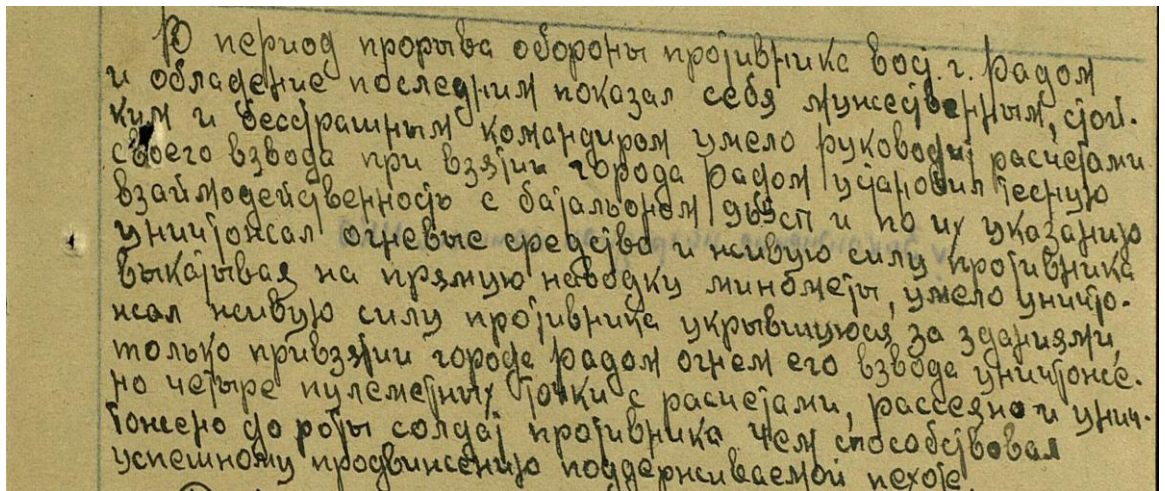 В период прорыва обороны противника вост. г. Радом
и обладение последним показал себя мужественным, стой-
ким и бесстрашным командиром умело руководит расчетами
своего взвода при взятии города Радом установил тесную
взаимодейственность с батальоном сп и по их указанию
уничтожал огневые средства и живую силу противника
выкатывая на прямую наводку минометы, умело уничто-
жал живую силу противника укрывшуюся за зданиями,
только привзятии городе Радом огнем его взвода уничтоже-
но четыре пулеметных точки с расчетами, рассеяно и унич-
тожено до роты солдат противника чем способствовал
успешному продвижению поддерживаемой пехоте.